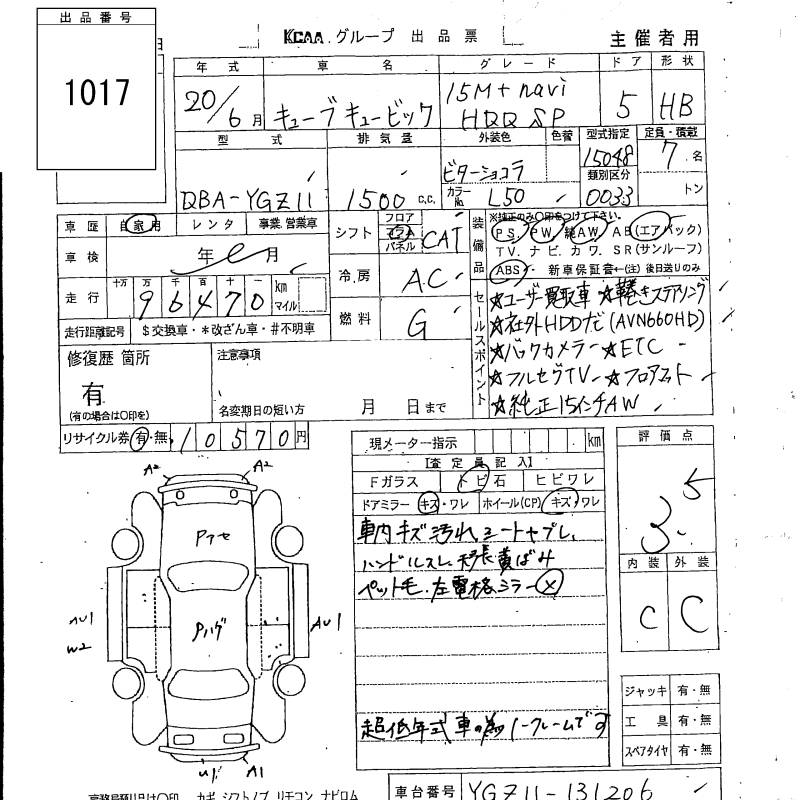 出品番号
1017
KCAA.グループ 出品票
主催者用
年式 車名 グレード ドア 形状
20/6月 キューブキュービック 15M+navi HDD SP 5 HB
型式 排気量 外装色 色替 型式指定 定員・積載
ビターショコラ 15048 7名
類別区分
DBA-YGZ11 1500 C.C. カラーNo. L50 0033 トン
車歴 自家用 レンタ 事業 営業車
シフト フロア コラム パネル CAT
装備品 ※純正のみ〇印をつけて下さい。
PS PW 純AW AB(エアバック)
TV. ナビ. カワ. SR(サンルーフ)
ABS・新車保証書←(注)後日送りのみ
車検 年 月
冷房 AC
走行 十万 万 千 百 十 一 96470 km マイル
燃料 G
走行距離記号 $交換車・*改ざん車・#不明車
セールスポイント
★ユーザー買取車 ★軽きステアリング
★社外HDDナビ(AVN660HD)
★バックカメラ ★ETC
★フルセグTV ★フロアマット
★純正15インチAW
修復歴 箇所
有
(有の場合は〇印を)
注意事項
名変期日の短い方 月 日まで
リサイクル券 有・無 10570円
現メーター指示 km
【査定員記入】
Fガラス トビ石 ヒビワレ
ドアミラー キズ・ワレ ホイール(CP) キズ・ワレ
車内キズ汚れ シートヤブレ、
ハンドルスレ 天張黄ばみ
ペット毛. 左電格ミラー×
超低年式車の為ノークレームです
評価点
3.5
内装 外装
C C
A2 A2
Pフセ
Pハゲ
AU1
W2
AU1
U1 A1
ジャッキ 有・無
工具 有・無
スペアタイヤ 有・無
車台番号 YGZ11-131206